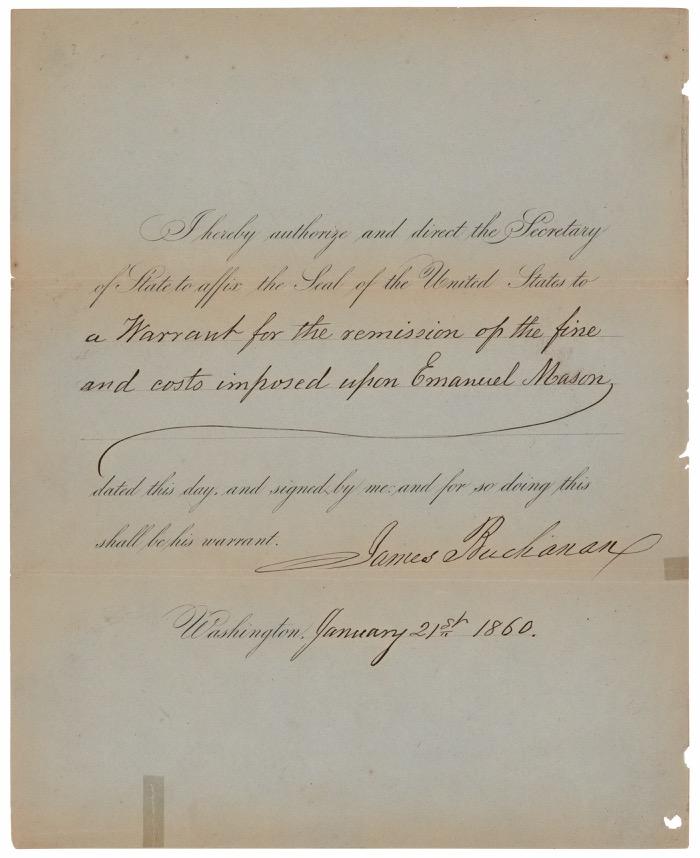 I hereby authorize and direct the Secretary
of State to affix the Seal of the United States to
a Warrant for the remission of the fine
and costs imposed upon Emanuel Mason,
dated this day, and signed by me: and for so doing this
shall be his warrant.
James Buchanan
Washington, January 21st 1860.